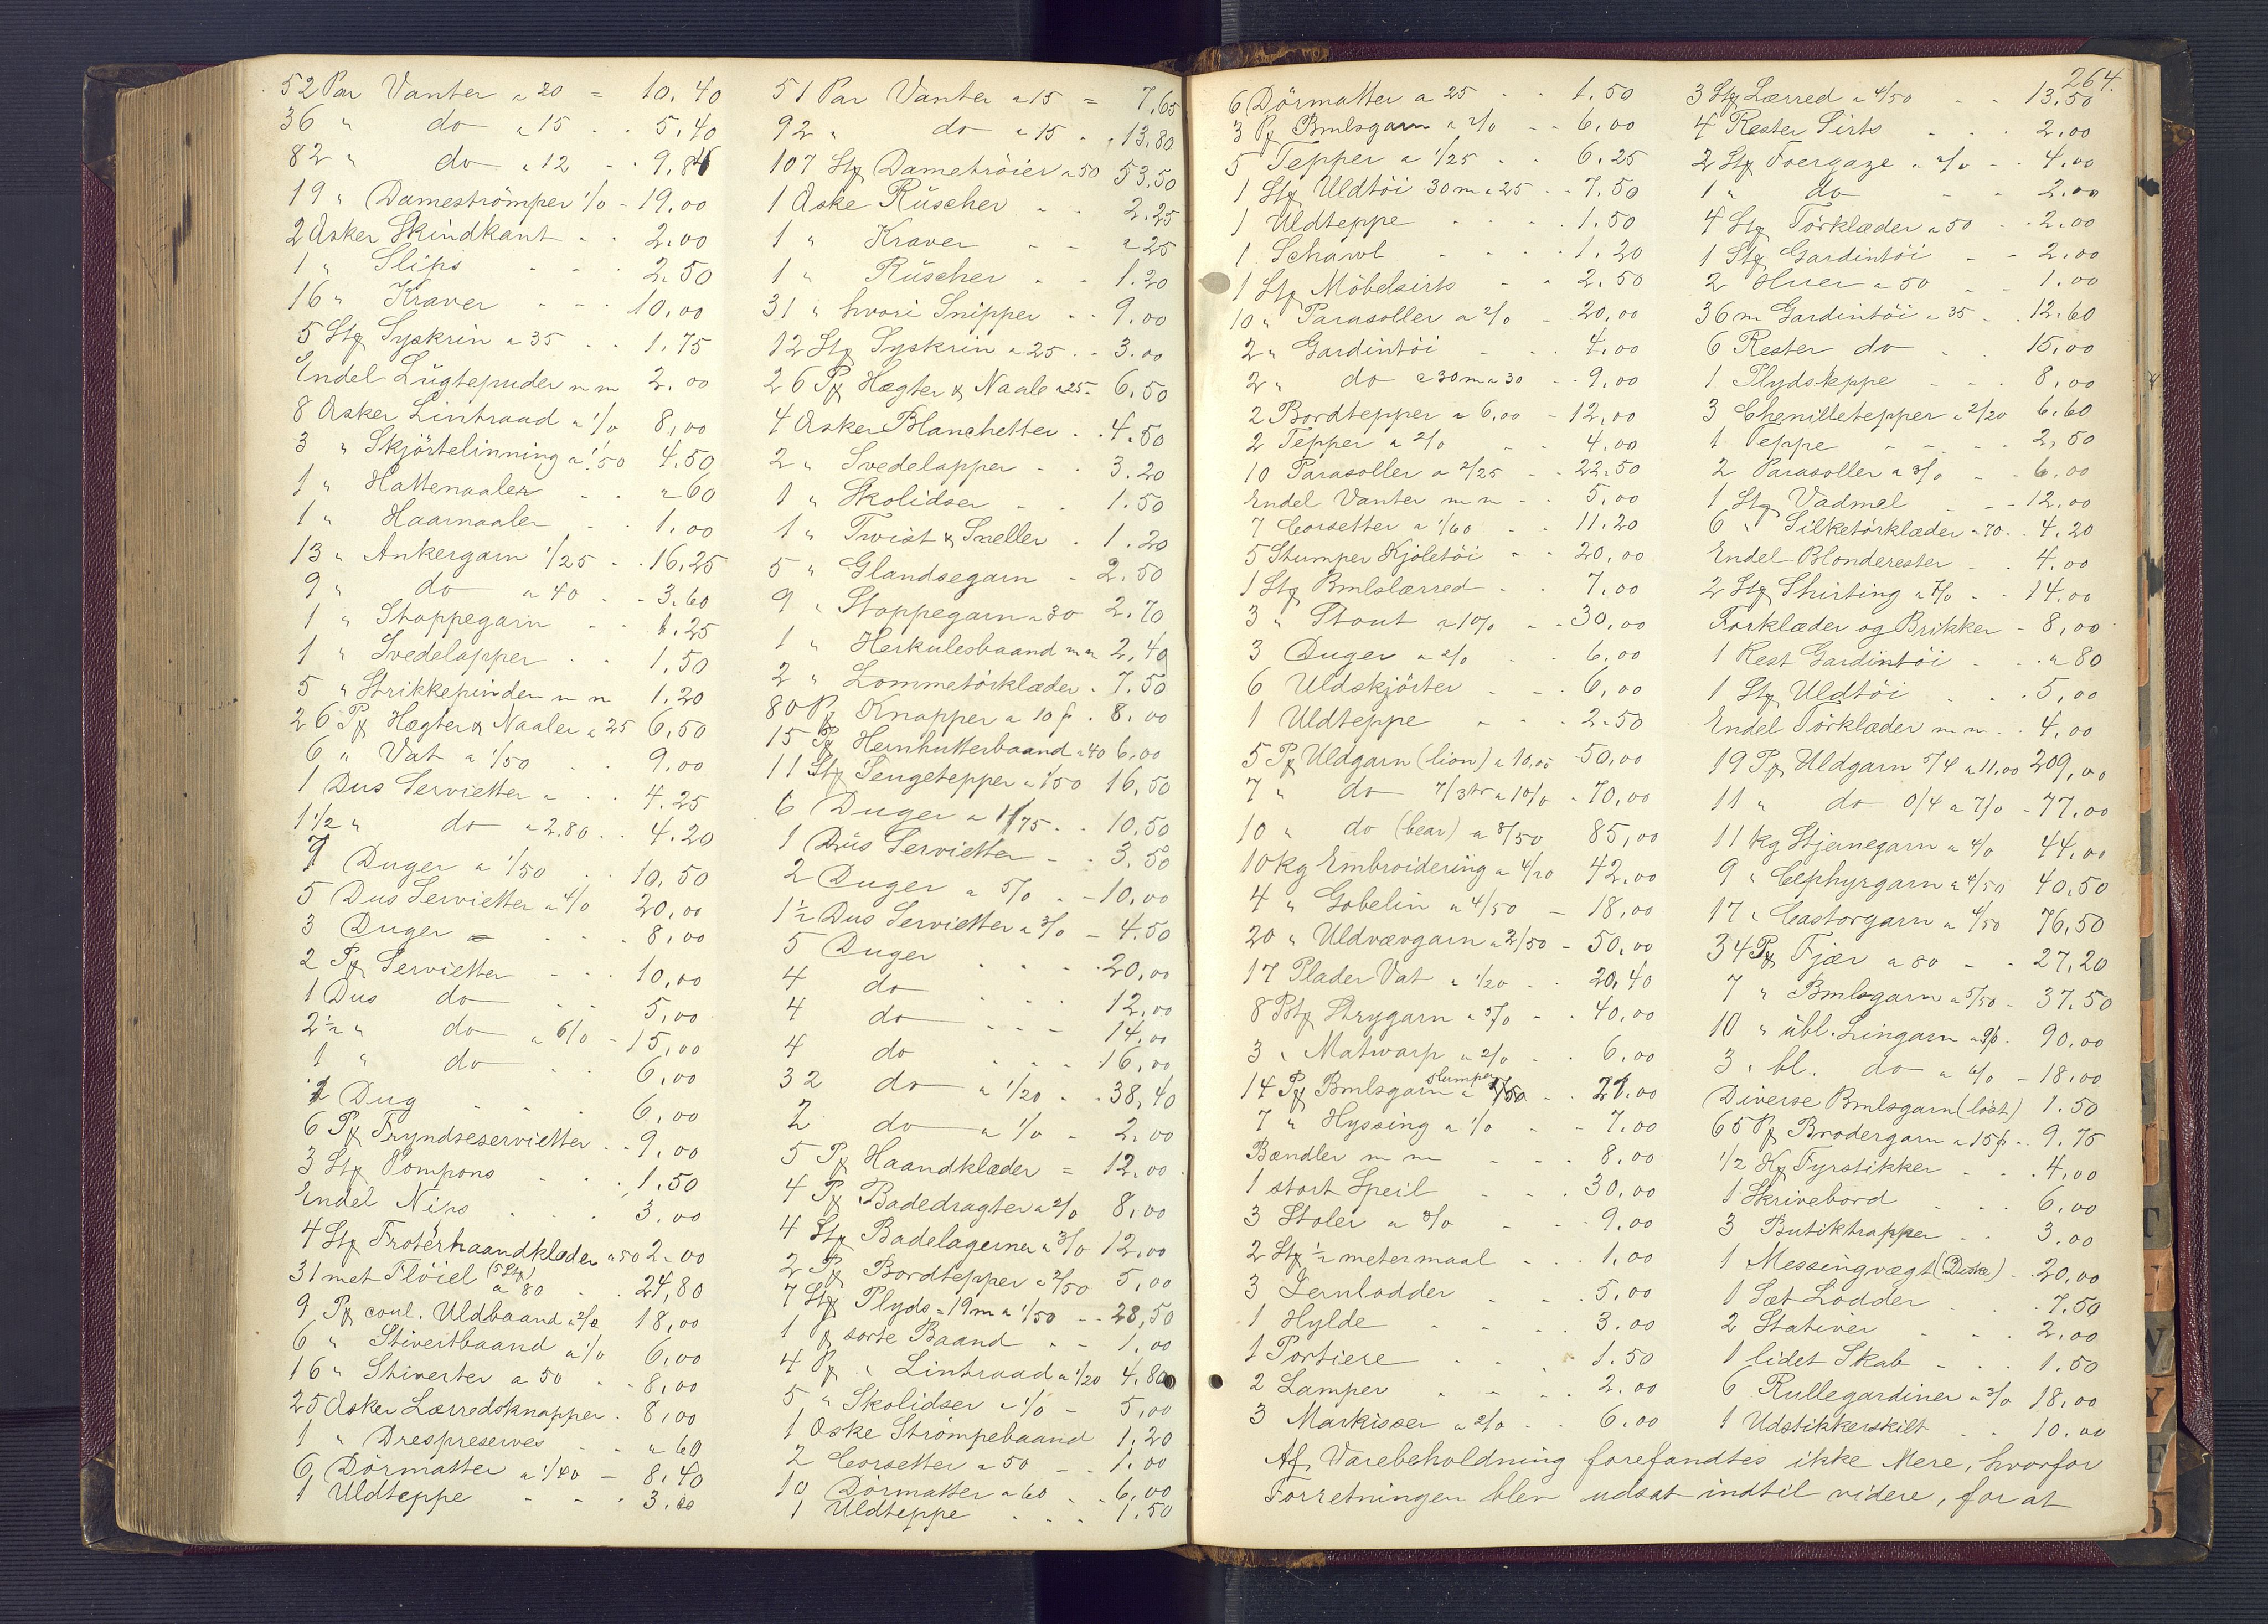 52 Par Vanter a 20 = 10.40
36 " do a 15 . . 5.40
82 " do a 12 . . 9.84
19 " Dameströmper 1/0 - 19.00
2 Æsker Skindkant . . 2.00
1 " Slips - - - 2.50
16 " Kraver - - - 10.00
5 Stk Syskrin a 35 . . 1.75
Endel Lügtepuder m m 2.00
8 Æsker Lintraad a 1/0 8,00
3 " Skjörtelinning a 1.50 4.50
1 " Hattenaaler . . " 60
1 " Haarnaaler . . 1.00
13 " Ankergarn 1/25 . . 16,25
9 " do a 40 . . 3.60
1 " Stoppegarn . . 1.25
1 " Svedelapper . . 1.50
5 " Strikkepinder m m 1.20
26 Pk Hægter & Naaler a 25 6,50
6 " Vat a 1/50 . . 9.00
1 Dus Servietter " . . 4.25
1 1/2 " do a 2.80 . . 4.20
7 Duger a 1/50 . . 10.50
5 Dus Servietter a 4/0 20,00
3 Duger . . . 8,00
2 Pk Servietter - - - 10,00
1 Dus do . . 5,00
2 1/2 " do a 6/0 - 15,00
1 " do . . 6,00
1 Dug - - - 6,00
6 Pk Fryndseservietter . . 9,00
3 Stk Pompons . . . 1.50
Endel Nips . . . 3.00
4 Stk Frotérhaandklæder a 50 2.00
31 met Flöiel (5 Stk) a 80 . . 24,80
9 Pk coul. Uldbaand a 2/0 18,00
6 " Stivertbaand a 1/0 6,00
16 " Stiverter a 50 . . 8,00
25 Æsker Lærredsknapper . 8,00
1 " Drespreserves . . " 60
6 Dörmatter a 1/40 - 8.40
1 Uldteppe - - - 3.00
51 Par Vanter a 15 = 7.65
92 " do a 15 . . 13,80
107 Stk Dametröier a 50 53.50
1 Æske Rüscher . . 2.25
1 " Kraver - - " 25
1 " Rüscher . . 1.20
31 " hvori Snipper . . 9.00
12 Stk Syskrin a 25 . . 3.00
26 Pk Hægter & Naale a 25 - 6,50
4 Æsker Blanchetter . . 4.50
2 " Svedelapper . . 3.20
1 " Skolidser . . 1.50
1 " Twist & Sneller . 1.20
5 " Glandsegarn . 2.50
9 " Stoppegarn a 30 2.70
1 " Herkulesbaand m m 2,40
2 " Lommetörklæder . 7.50
80 Pk Knapper a 10 p . 8.00
15 Pk Hernhutterbaand a 40 6,00
11 Stk Sengetepper a 1/50 16,50
6 Duger a 1/75 . . 10.50
1 Düs Servietter - . 3.50
2 Duger a 5/0 . - 10,00
1 1/2 Dus Servietter a 3/0 - 4.50
5 Duger . . . 20,00
4 do . . . 12,00
4 do - - - 14.00
4 do . . . 16,00
32 do a 1/20 . . 38,40
2 do a 1/0 - 2.00
5 Pk Haandklæder = 12.00
4 Pk Badedragter a 2/0 8,00
4 Stk Badelagener a 3/0 12,00
2 Pk Bordtepper a 2/50 5,00
7 Stk Plyds = 19 m a 1/50 -- 28,50
1 Pk sorte Baand . - 1.00
4 Pk " Lintraad a 1/20 4.80
5 " Skolidser a 1/0 - 5,00
1 Æske Strömpebaand 1,20
2 Corsetter a 50 - - 1.00
10 Dörmatter a 60 . . 6,00
1 Uldteppe . . . 1.50
264.
6 Dörmatter a 25 - - 1.50
3 Pk Bmlsgarn a 2/0 -- 6,00
5 Tepper a 1/25 . . 6.25
1 Stk Uldtöi 30 m a 25 . . 7.50
1 Uldteppe - - - 1.50
1 Schawl - - - 1.20
1 Stk Möbelsirts - - 2.50
10 " Parasoller a 2/0 - 20,00
2 " Gardintöi - - - 4,00
2 " do a 30 m a 30 - - 9,00
2 Bordtepper a 6,00 - 12,00
2 Tepper a 2/0 . . 4.00
10 Parasoller a 2/25 - - 22.50
Endel Vanter m m - . 5,00
7 Corsetter a 1/60 . . 11.20
5 Stumper Kjoletöi - - 20,00
1 Stk Bmlslærred - . 7.00
3 " Stout a 10/0 . . 30,00
3 Duger a 2/0 . . 6,00
6 Uldskjörter - - - 6,00
1 Uldteppe - - - 2.50
5 Pk Uldgarn (lion) a 10,00 50,00
7 " do 7/3 tr a 10/0 - 70,00
10 " do (bear) a 8/50 85,00
10 kg Embroidering a 4/20 42,00
4 " Gobelin a 4/50 - 18,00
20 " Uldvævgarn a 2/50 - 50,00
17 Plader Vat a 1/20 . . 20,40
8 Btk Strygarn a 5/0 - - 40,00
3 " Matwarp a 2/0 . . 6,00
14 Pk Bmlsgarn slumper a 1/50 - - 21.00
7 " Hyssing a 1/0 - - 7.00
Bændler m m - - - 8.00
1 stort Speil - - - 30,00
3 Stoler a 3/0 - - 9.00
2 Stk 1/2 metermaal - . . 1.00
3 Jernlodder - - - 5,00
1 Hylde - - - 3.00
1 Portiere . . . 1.50
2 Lamper - - - 2.00
3 Markisser a 2/0 . . 6.00
3 Stk Lærred a 4/50 - - 13.50
4 Rester Sirts - - - 2.00
2 Stk Foergaze a 2/0 - . 4.00
1 " do - - 2.00
4 Stk Törklæder a 50 - . 2.00
1 Stk Gardintöi - - 2.00
2 Huer a 50 - - 1.00
36 m Gardintöi a 35 - . 12.60
6 Rester do . . 15,00
1 Plydsteppe - - - 8,00
3 Chenilletepper a 2/20 6.60
1 Teppe - - - 2,50
2 Parasoller a 3/0 - - 6,00
1 Stk Vadmel . - - 12.00
6 " Silketörklæder a 70 . . 4.20
Endel Blonderester . . 4.00
2 Stk Shirting a 7/0 . . 14,00
Forklæder og Brikker - 8,00
1 Rest Gardintöi . . . " 80
1 Stk Uldtöi . . . 5,00
Endel Törklæder m m . . 4,00
19 Pk Uldgarn 5/4 a 11.00 209,00
11 " do 0/4 a 7/0 - 77.00
11 kg Stjernegarn a 4/0 44,00
9 " Cephyrgarn a 4/50 40.50
17 " Castorgarn a 4/50 76,50
34 Pk Fjær a 80 - . 27,20
7 " Bmlsgarn a 5/50 - 37.50
10 " übl. Lingarn a 9/0 . 90.00
3 " bl. do a 6/0 - 18,00
Diverse Bmlsgarn (löst) 1.50
65 Pk Brodergarn a 15 p . . 9.75
1/2 Kg Fyrstikker . . . 4,00
1 Skrivebord . . . 6,00
3 Butiktrapper . . 3.00
1 Messingvægt (Diske) . . 20,00
1 Sæt Lodder . . . 7.50
2 Stativer . . . 2,00
1 lidet Skab - - - 1.50
6 Rullegardiner a 3/0 18,00
1 Udstikkerskilt . . 10.00
Af Varebeholdning forefandtes ikke Mere, hvorfor
Forretningen blev udsat indtil videre, for at